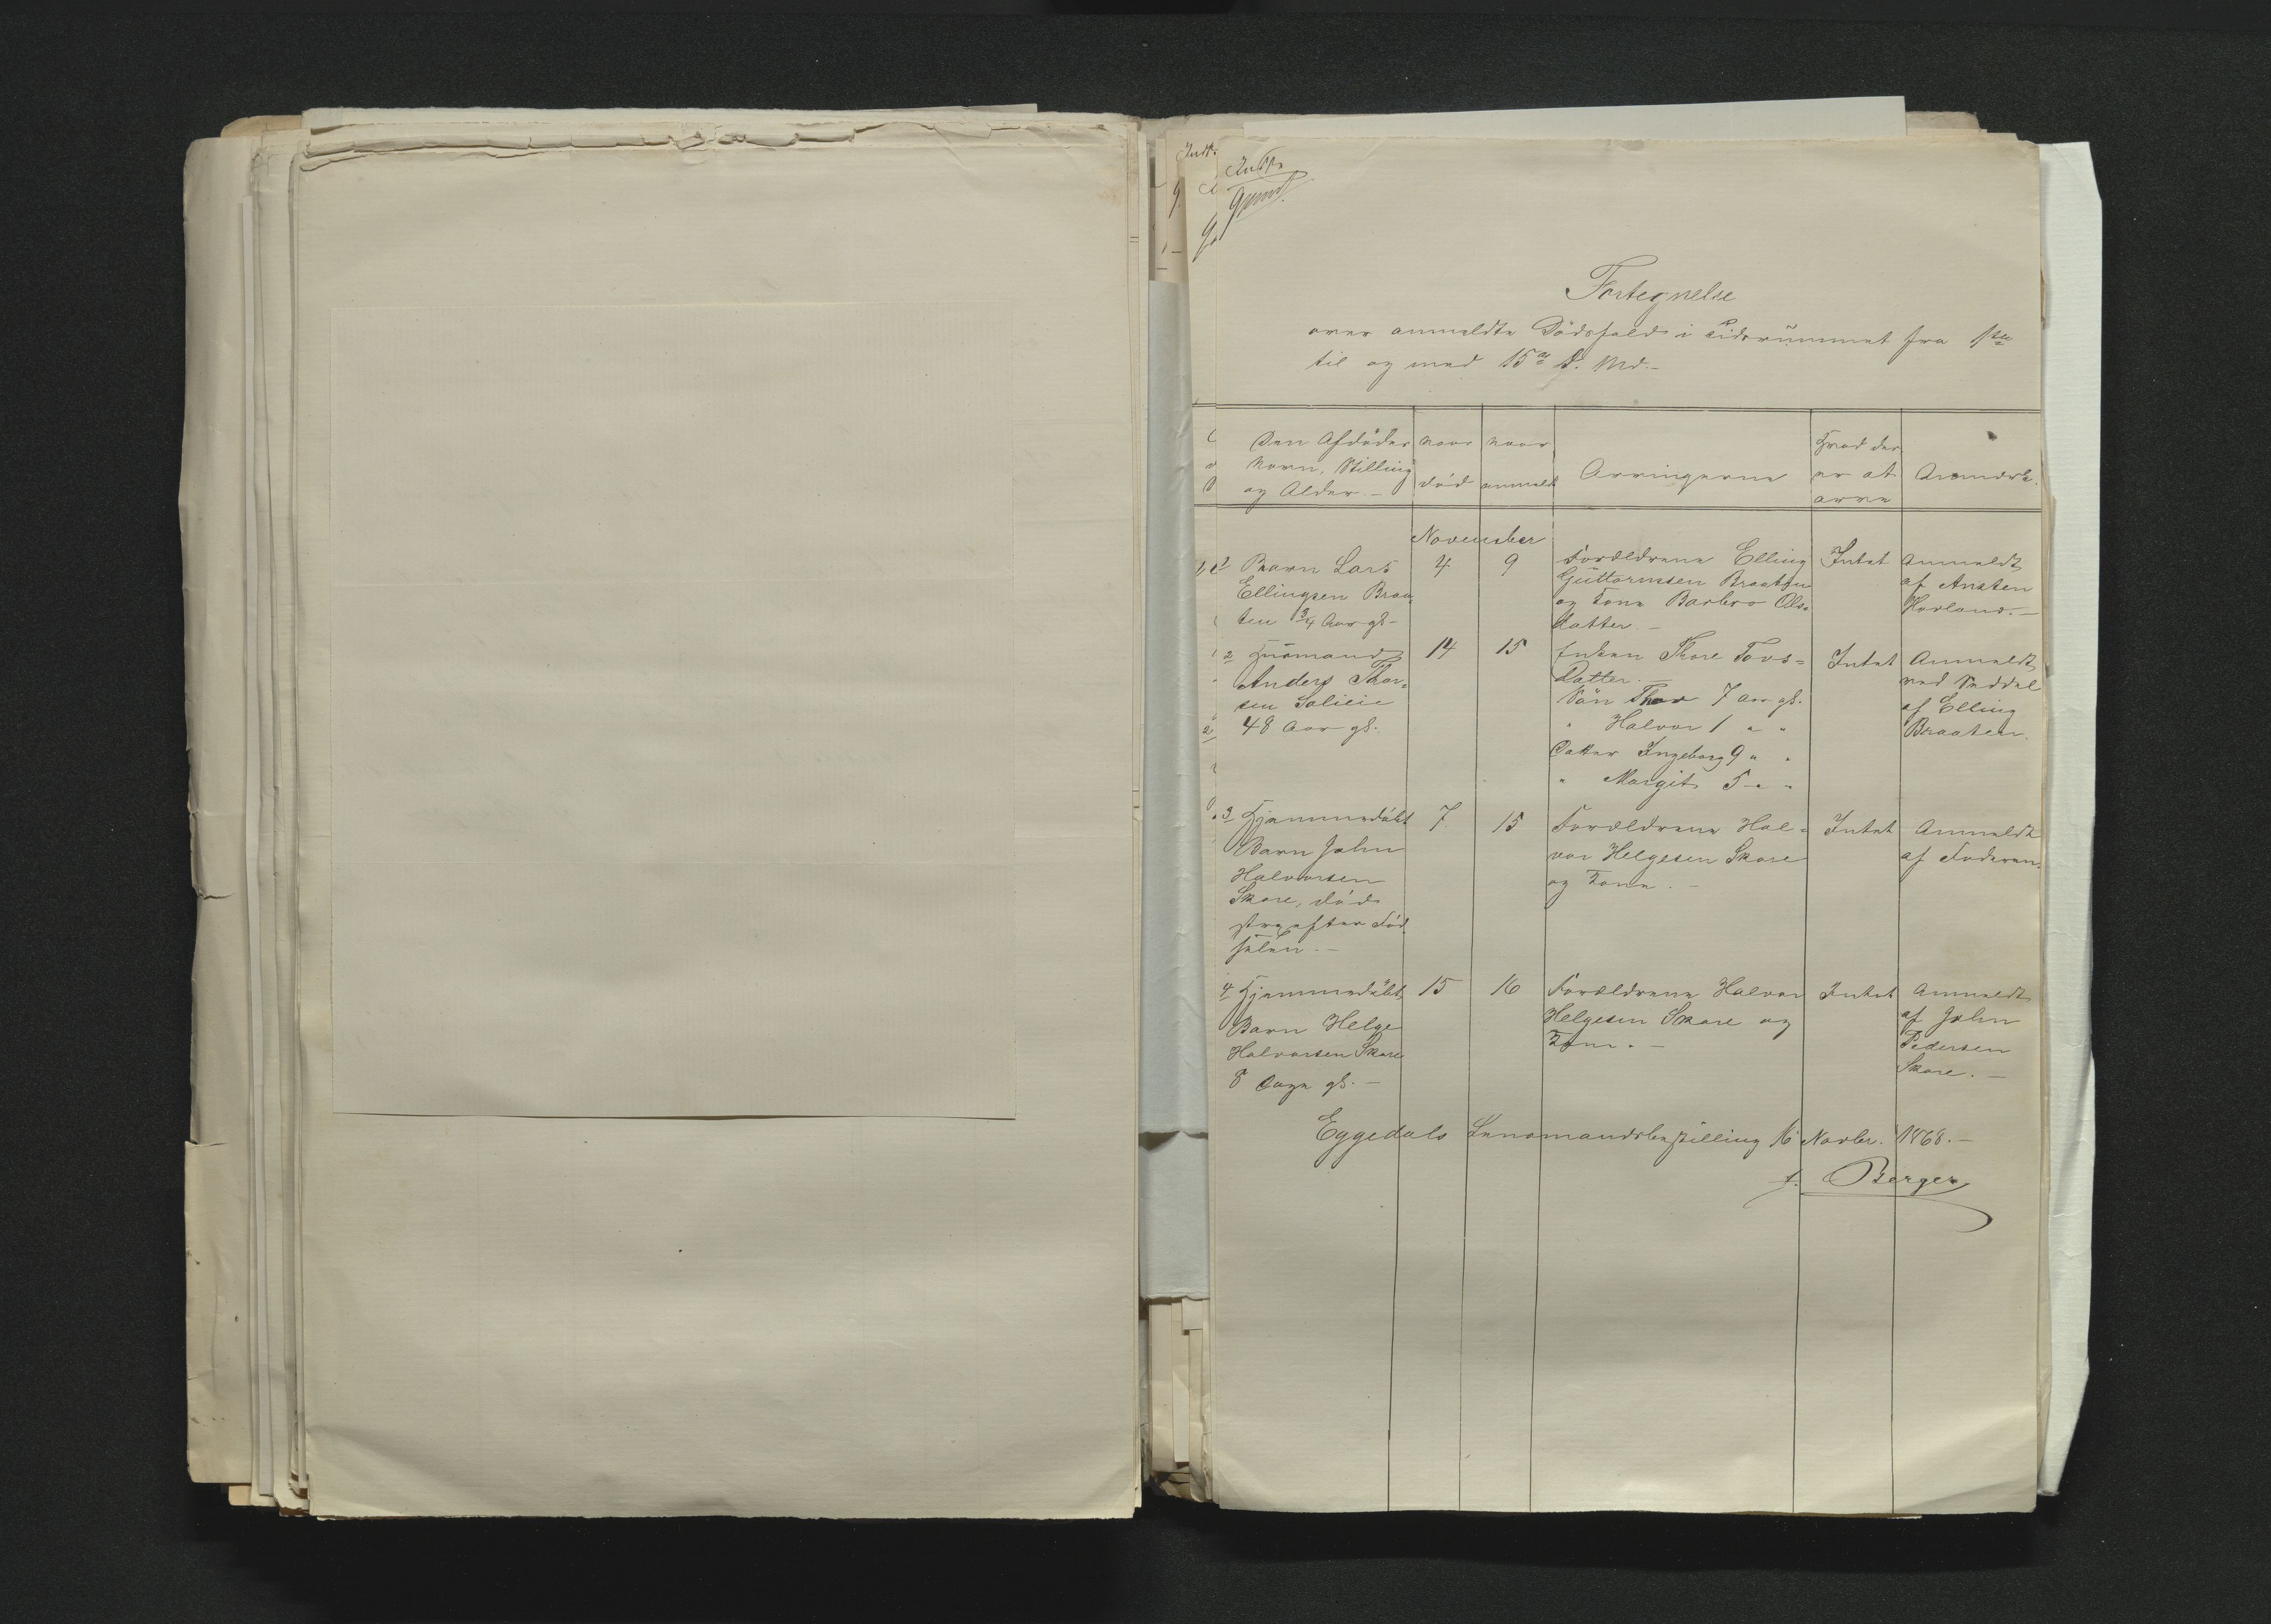 Fortegnelse
over anmeldte Dödsfald i Tidsrummet fra 1ste
til og med 15de d. Md. –
Den Afdödes
Navn, Stilling
og Alder. –
naar
död
naar
anmeldt
Arvingerne
Hvad der
er at
arve
Anmærk.
November
1 Barn Lars
Ellingsen Braa-
ten 3/4 Aar gl. –
4
9
Forældrene Elling
Guttormsen Braaten
og Kone Barbro Ols-
datter. –
Intet
Anmeldt
af Austen
Hovland. –
2 Husmand
Anders Thor-
sen
48 Aar gl.
14
15
Enken Thore Tovs-
datter. –
Sön Thor 7 Aar gl.
" Halvor 1 " "
Datter Ingeborg 9 " "
" Margit 5 " "
Intet
Anmeldt
ved Seddel
af Elling
Braaten.
3 Hjemmedöbt
Barn John
Halvorsen
Skare, död
strax efter Föd-
selen. –
7
15
Forældrene Hal-
vor Helgesen Skare
og Kone. –
Intet
Anmeldt
af Faderen.
4 Hjemmedöbt
Barn Helge
Halvorsen Skare
8 Dage gl. –
15
16
Forældrene Halvor
Helgesen Skare og
Kone. –
Intet
Anmeldt
af John
Pedersen
Skare. –
Eggedals Lensmandsbestilling 16 Novbr. 1868. –
Berger